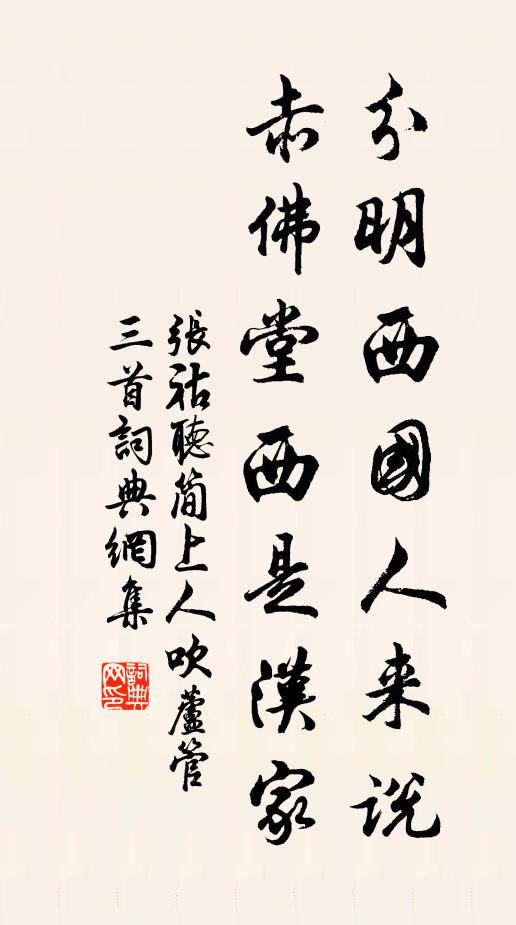 分明西國人来説
赤佛堂西是漢家
張祜聽簡上人吹蘆管
三首詞典網集
詞典網印